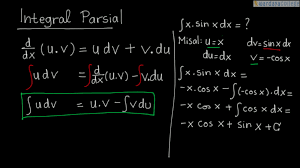 Integral Parsial
d/dx (u.v) = u dv + v.du
∫u dv = ∫d/dx(u.v) - ∫v.du
∫u dv = u.v - ∫v du
∫x.sin x dx = ?
Misal: u=x dv= sinx dx
du=dx v = -cosx
∫x.sin x dx =
-x.cosx - ∫(-cosx).dx =
-x cosx + ∫cosx dx =
-x cosx + sinx + C